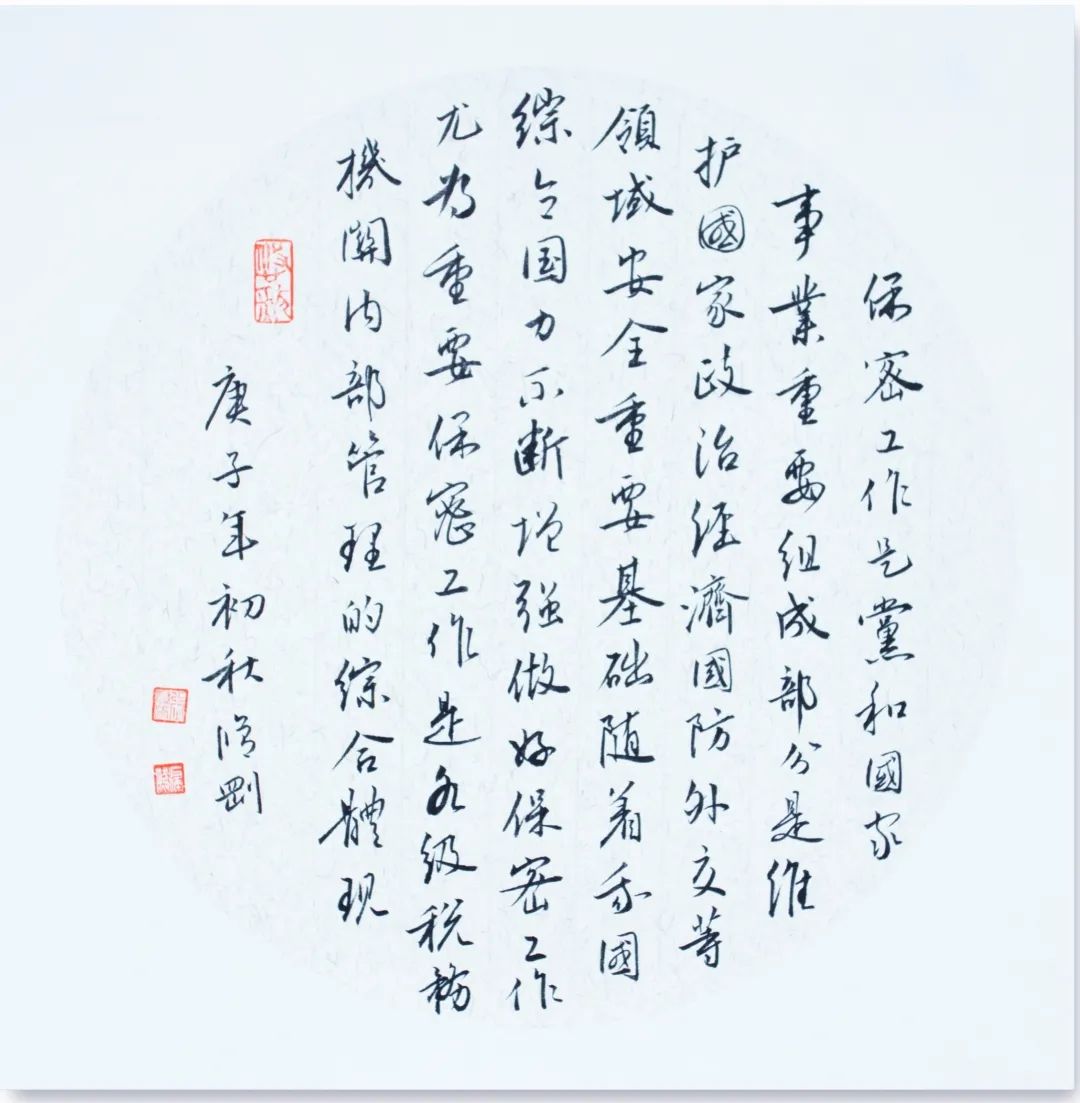 保密工作是黨和國家
事業重要組成部分是維
护國家政治經濟國防外交等
領域安全重要基础随着我國
综合国力不断增强做好保密工作
尤为重要保密工作是各级税務
機關内部管理的综合體現
庚子年初秋 剛